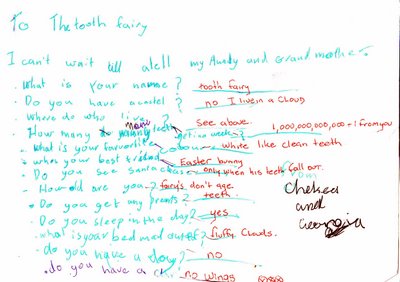 To The tooth fairy
I can't wait till atell my Aundy and Grand mother
· What is your name? tooth fairy
· Do you have a castel? no I live in a CLOUD
· Where do who live? See above.
· How many teeth get in a week? 1,000,000,000,000 + 1 from you
· What is your farvorite Colour white like clean teeth
· whos your best friend Easter bunny
· Do you see santa claus only when his teeth fall out.
· How old are you? fairy's don't age.
· Do you get any presents? teeth.
· Do you sleep in the day? yes
· what is your bed mad out of? fluffy Clouds.
· do you have a dog? no
· do you have a no wings
From
Chelsea
and
Georgia